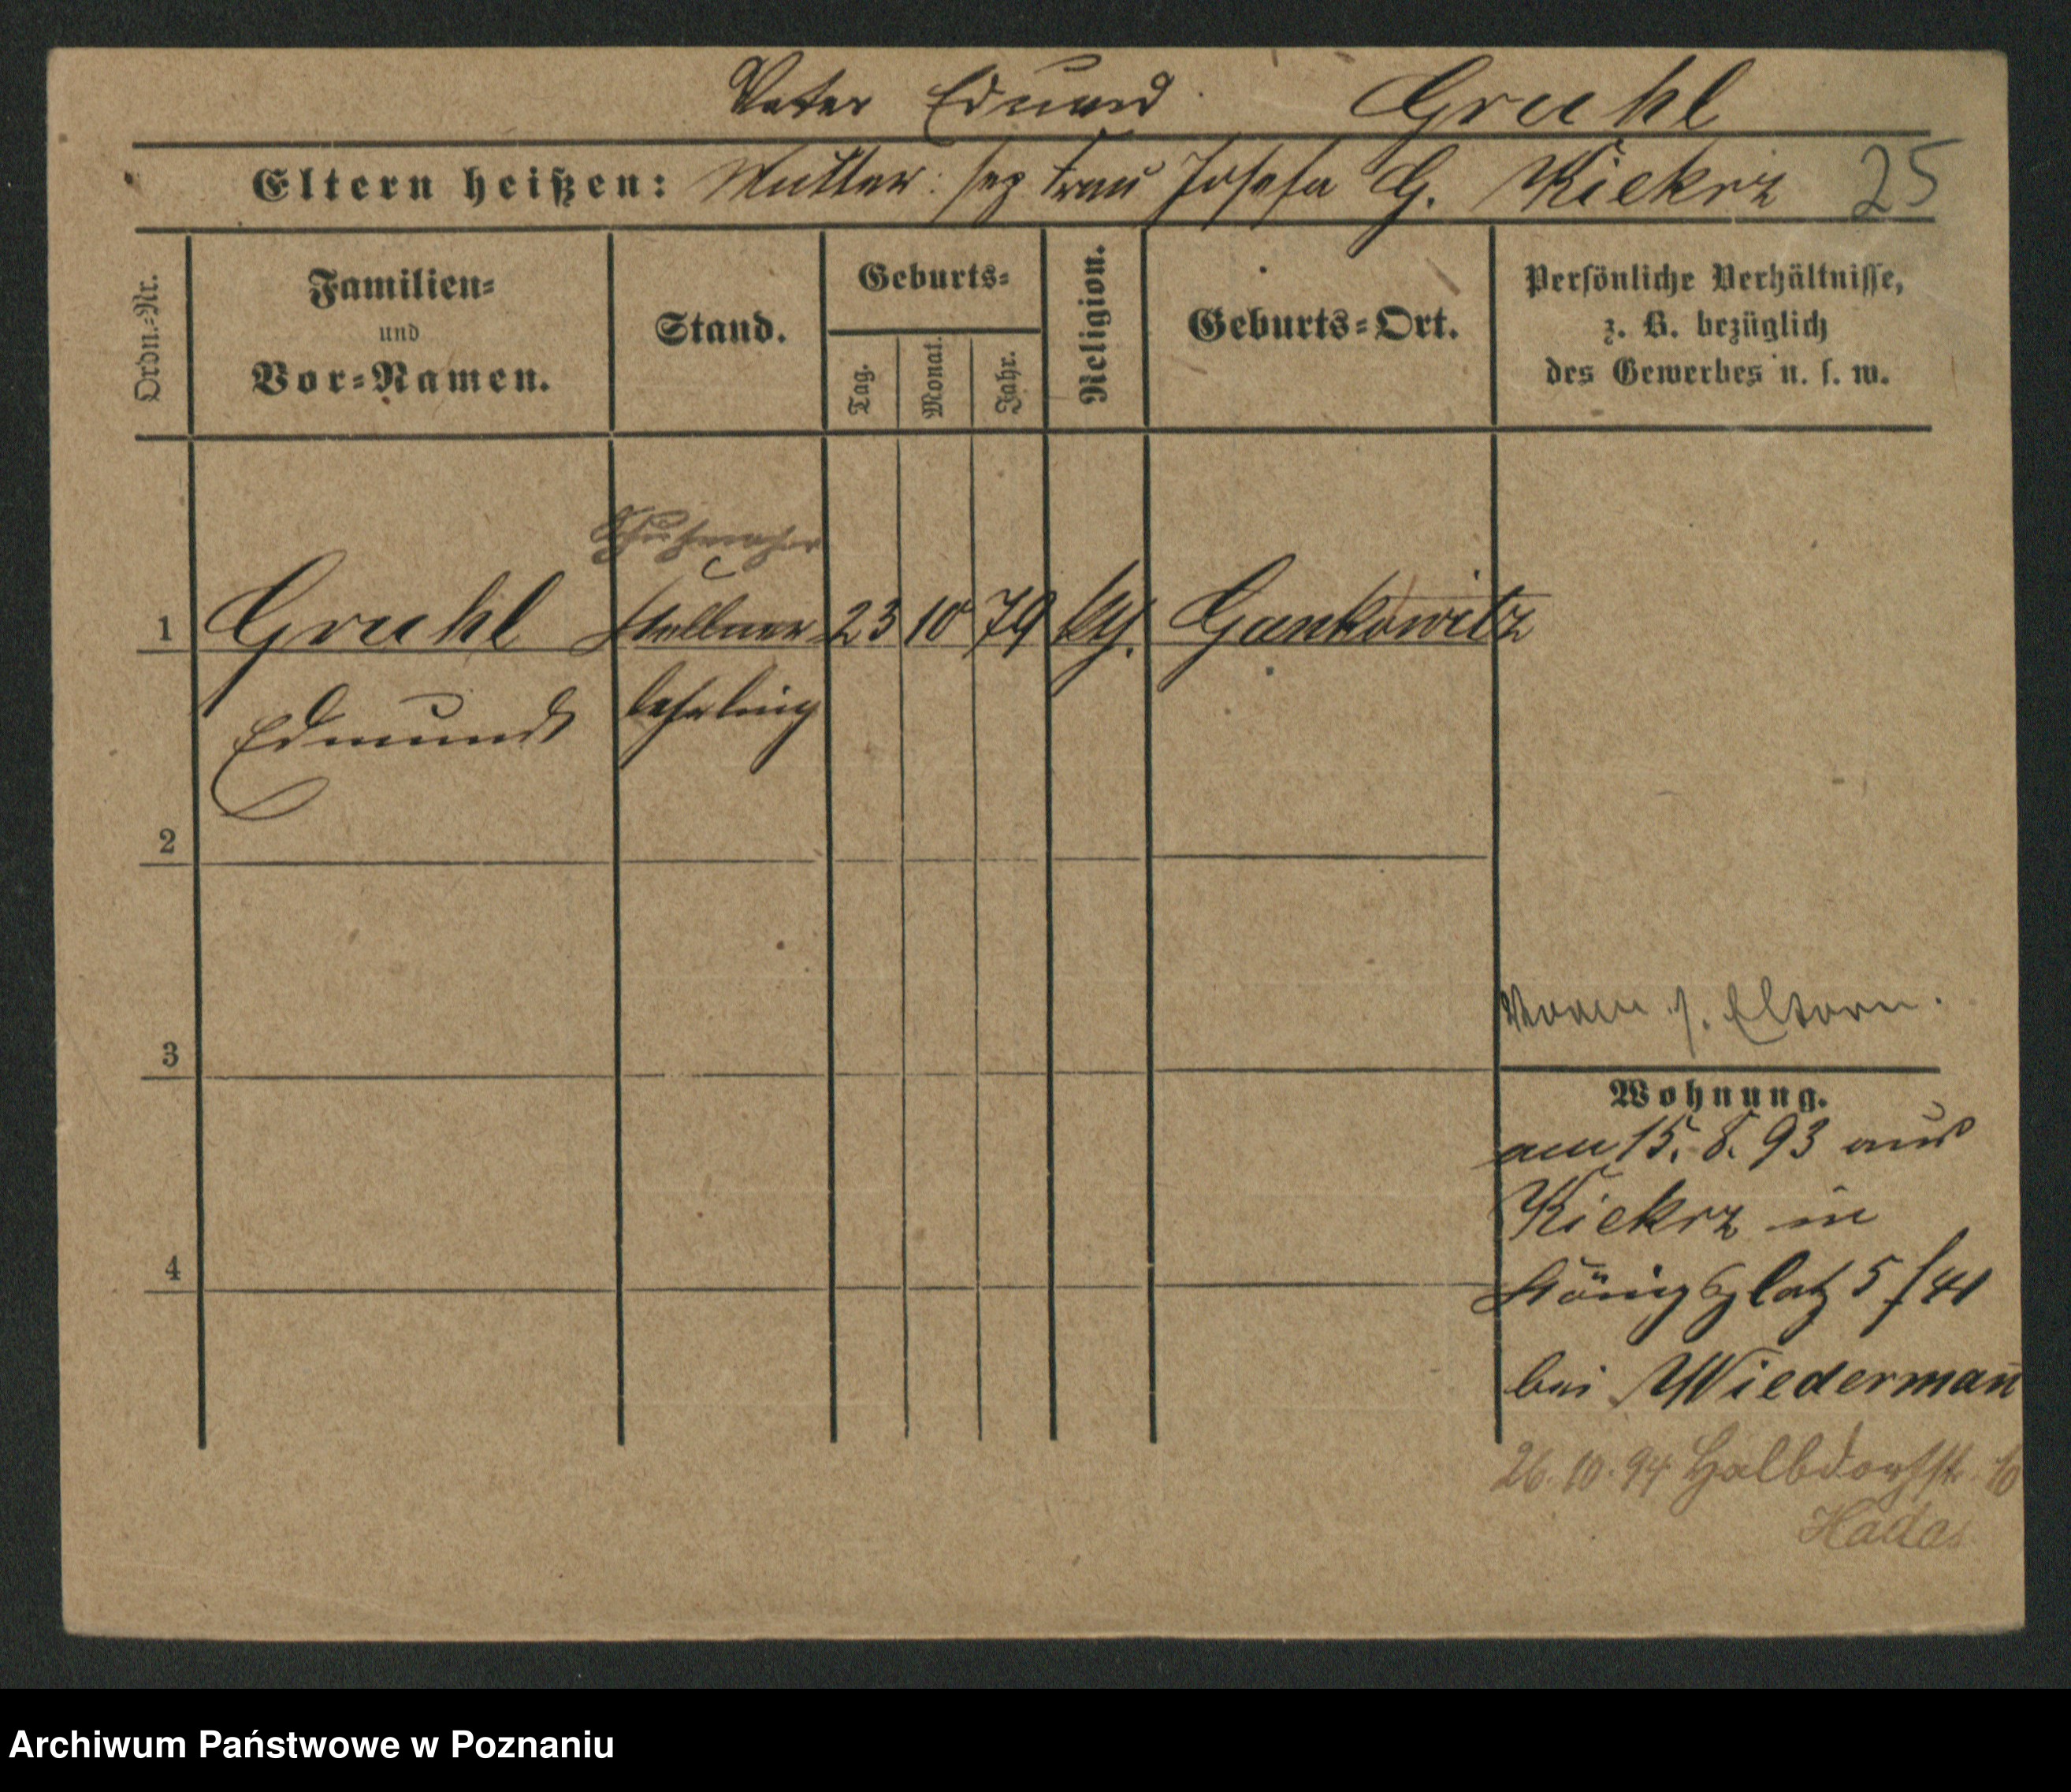 Vater Eduard Gruhl
Eltern heißen: Mutter: sep Frau Josefa G. Kiekrz 25
Ordn.=Nr.
Familien=
und
Vor=Namen.
Stand.
Geburts=
Tag.
Monat.
Jahr.
Religion.
Geburts=Ort.
Persönliche Verhältnisse,
z. B. bezüglich
des Gewerbes u. s. w.
Schuhmacher
1 Gruhl Kellner 23 10 79 kth. Gankowitz
Edmund lehrling
2
3
4
Eltern.
Wohnung.
am 15. 8. 93 aus
Kiekrz in
Königsplatz 5 /41
bei Wiedermañ
26. 10. 94 Halbdorfstr. 10
Hadas
Archiwum Państwowe w Poznaniu